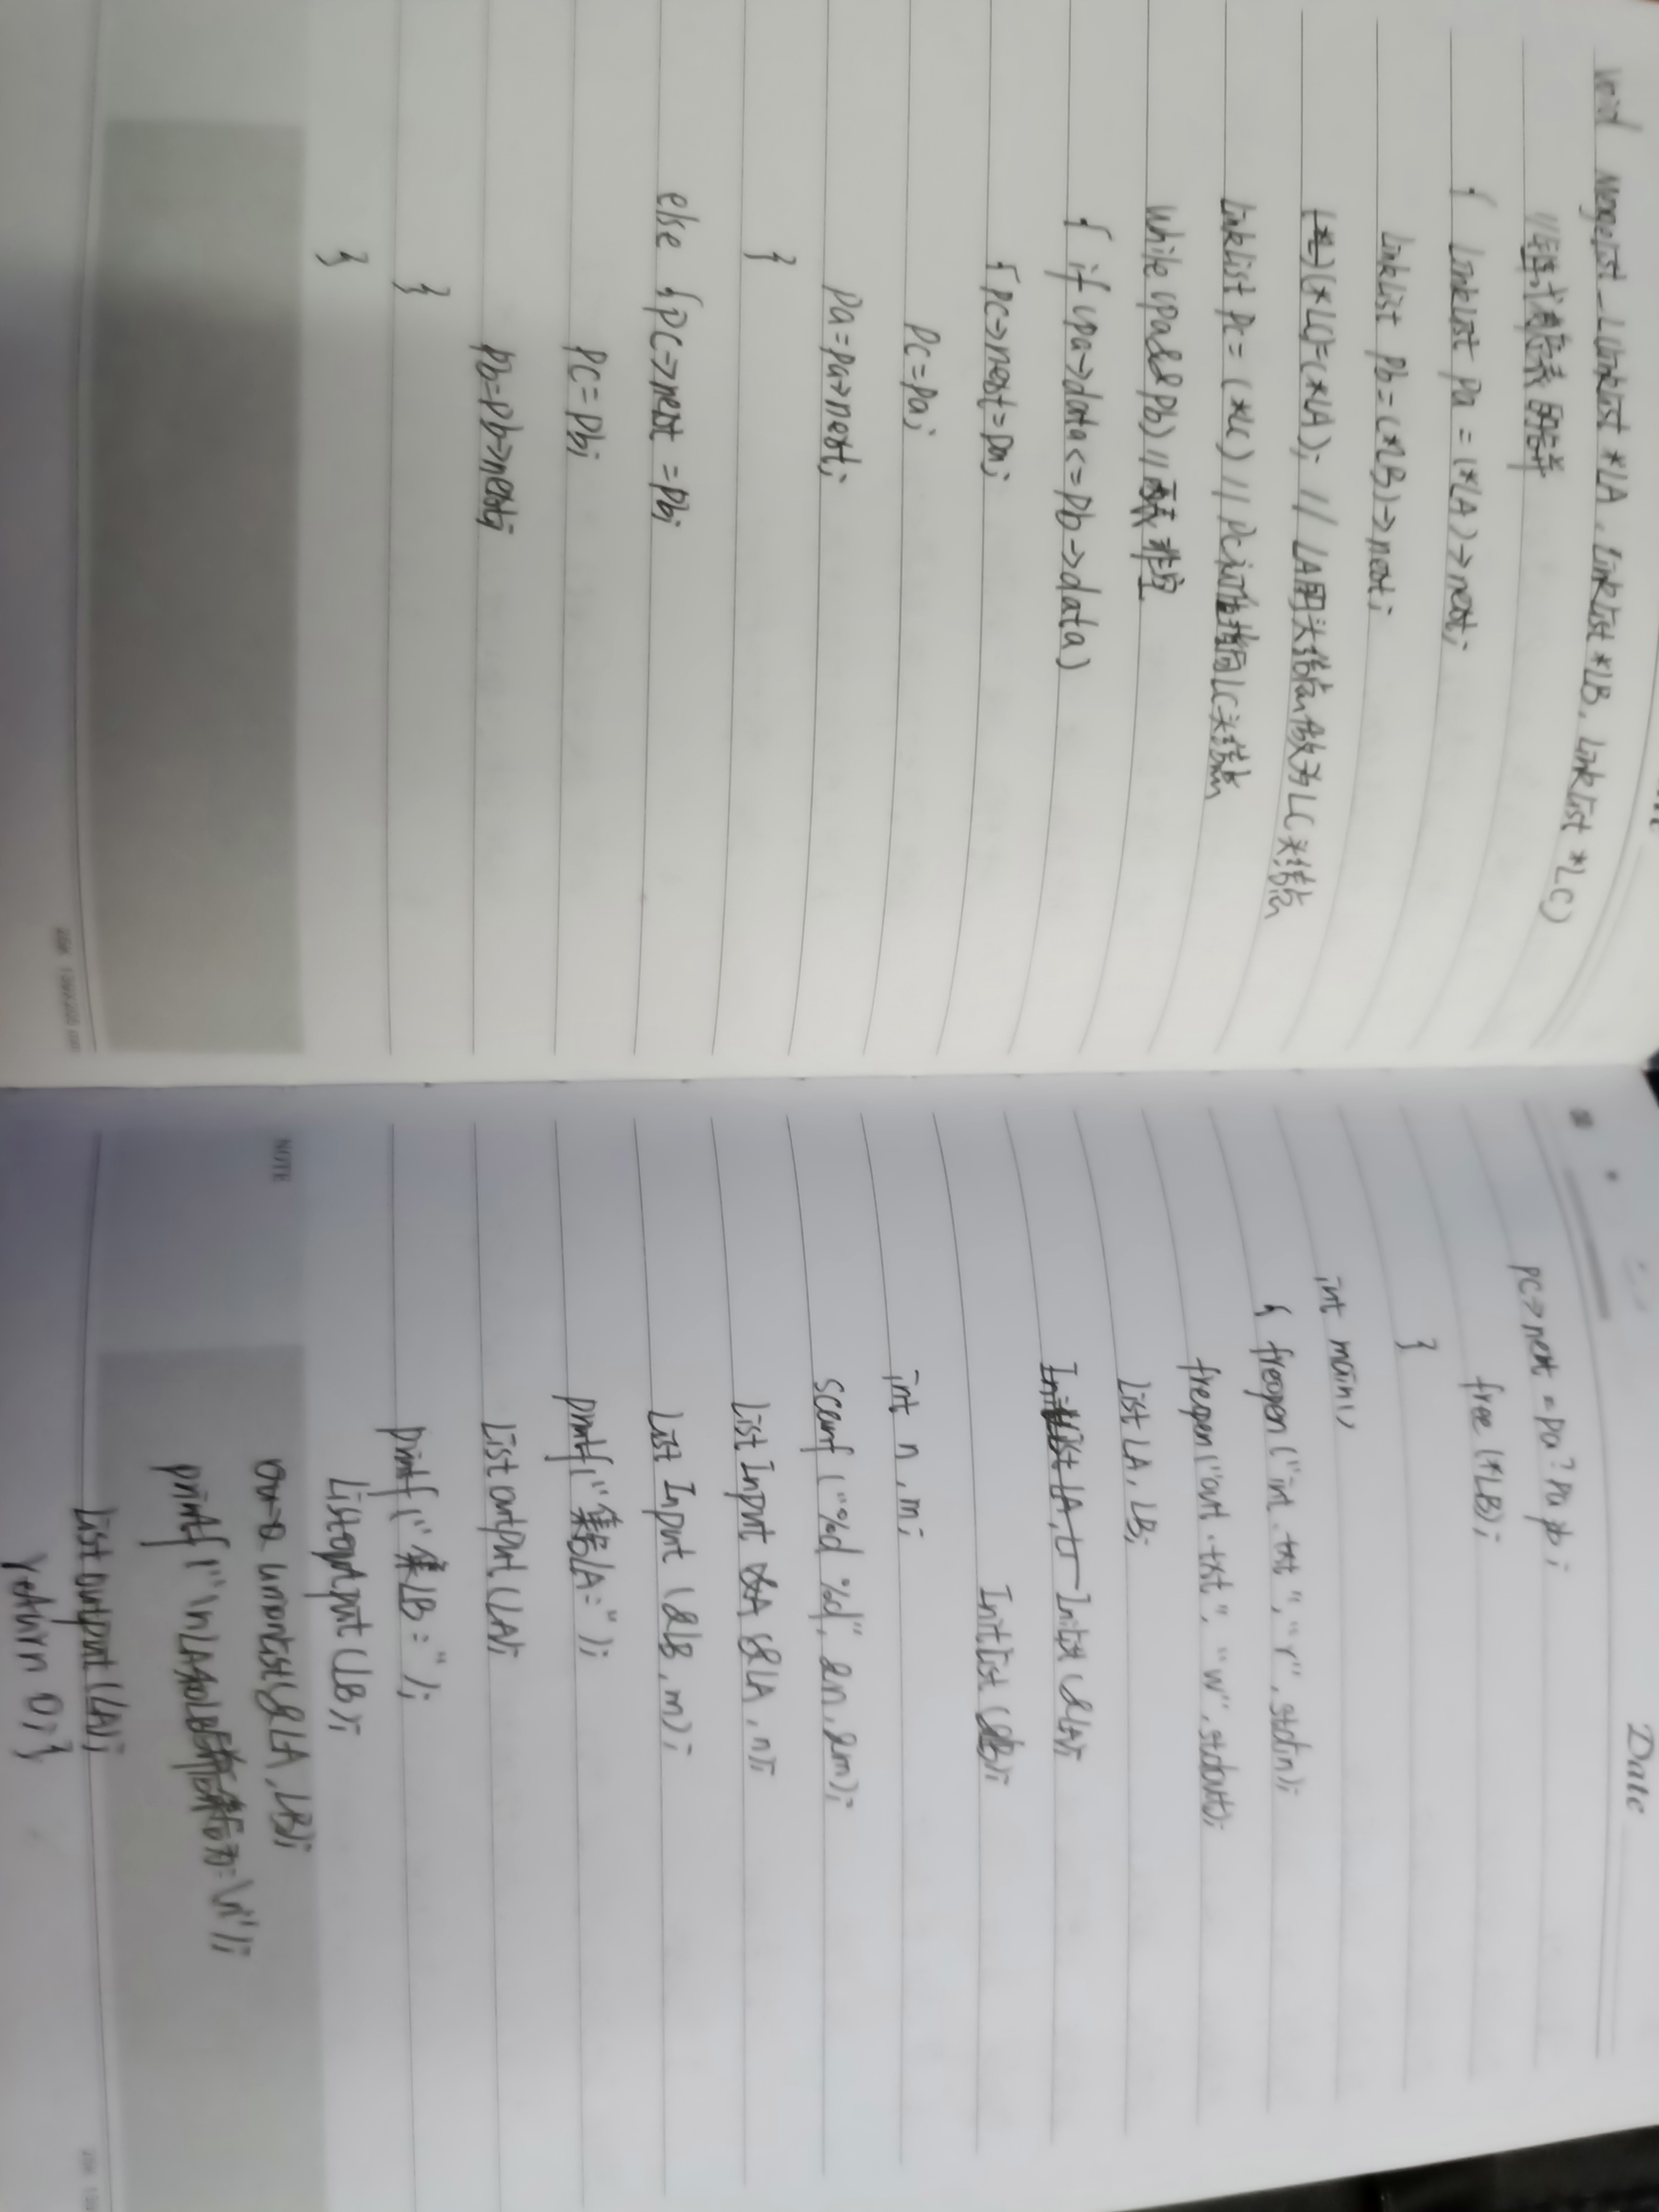 void MergeList_L(LinkList *LA, LinkList *LB, LinkList *LC)
//链式有序表的合并
{ LinkList Pa = (*LA)->next;
LinkList Pb = (*LB)->next;
(*LC)=(*LA); // LA的头结点做为LC头结点
LinkList Pc = (*LC) // Pc初值指向LC头结点
while (pa&&Pb) //两表非空
{ if (pa->data <= Pb->data)
{ pc->next = pa;
Pc = pa;
Pa = pa->next;
}
else { PC->next = Pb;
PC = Pb;
Pb = Pb->next;
}
}
Date
pc->next = Pa? Pa
free (*LB);
}
int main()
{ freopen ("int.txt", "r", stdin);
freopen ("out.txt", "w", stdout);
List LA, LB;
InitList (&LA);
InitList (&LB);
int n, m;
scanf ("%d %d", &n, &m);
List Input &LA, n);
List Input (&LB, m);
printf ("集合LA=");
List output (LA);
printf ("集LB=");
List output (LB);
NOTE
unionList(&LA, LB);
printf ("\nLA和LB \n");
List output (LA);
return 0; }